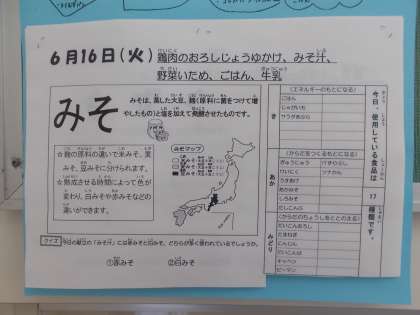 6月16日(火)鶏肉のおろしじょうゆかけ、みそ汁、
野菜いため、ごはん、牛乳
みそ
みそは、蒸した大豆、麹(原料に菌をつけて増
やしたもの)と塩を加えて発酵させたものです。
☆麹の原料の違いで米みそ、麦
みそ、豆みそに分けられます。
☆熟成させる時間によって色が
変わり、白みそや赤みそなどの
違いができます。
みそマップ
クイズ 今日の献立の「みそ汁」には赤みそと白みそ、どちらが多く使われているでしょうか。
①赤みそ ②白みそ
今日、使用している食品は 17 種類です。
き
(エネルギーのもとになる)
ごはん
じゃがいも
サラダあぶら
あか
(からだをつくるもとになる)
ぎゅうにゅう
けずりぶし
とりにく
ツナかん
あかみそ
しろみそ
だしこんぶ
みどり
(からだのちょうしをととのえる)
だいこんおろし
たまねぎ
にんじん
だいこんば
キャベツ
ピーマン